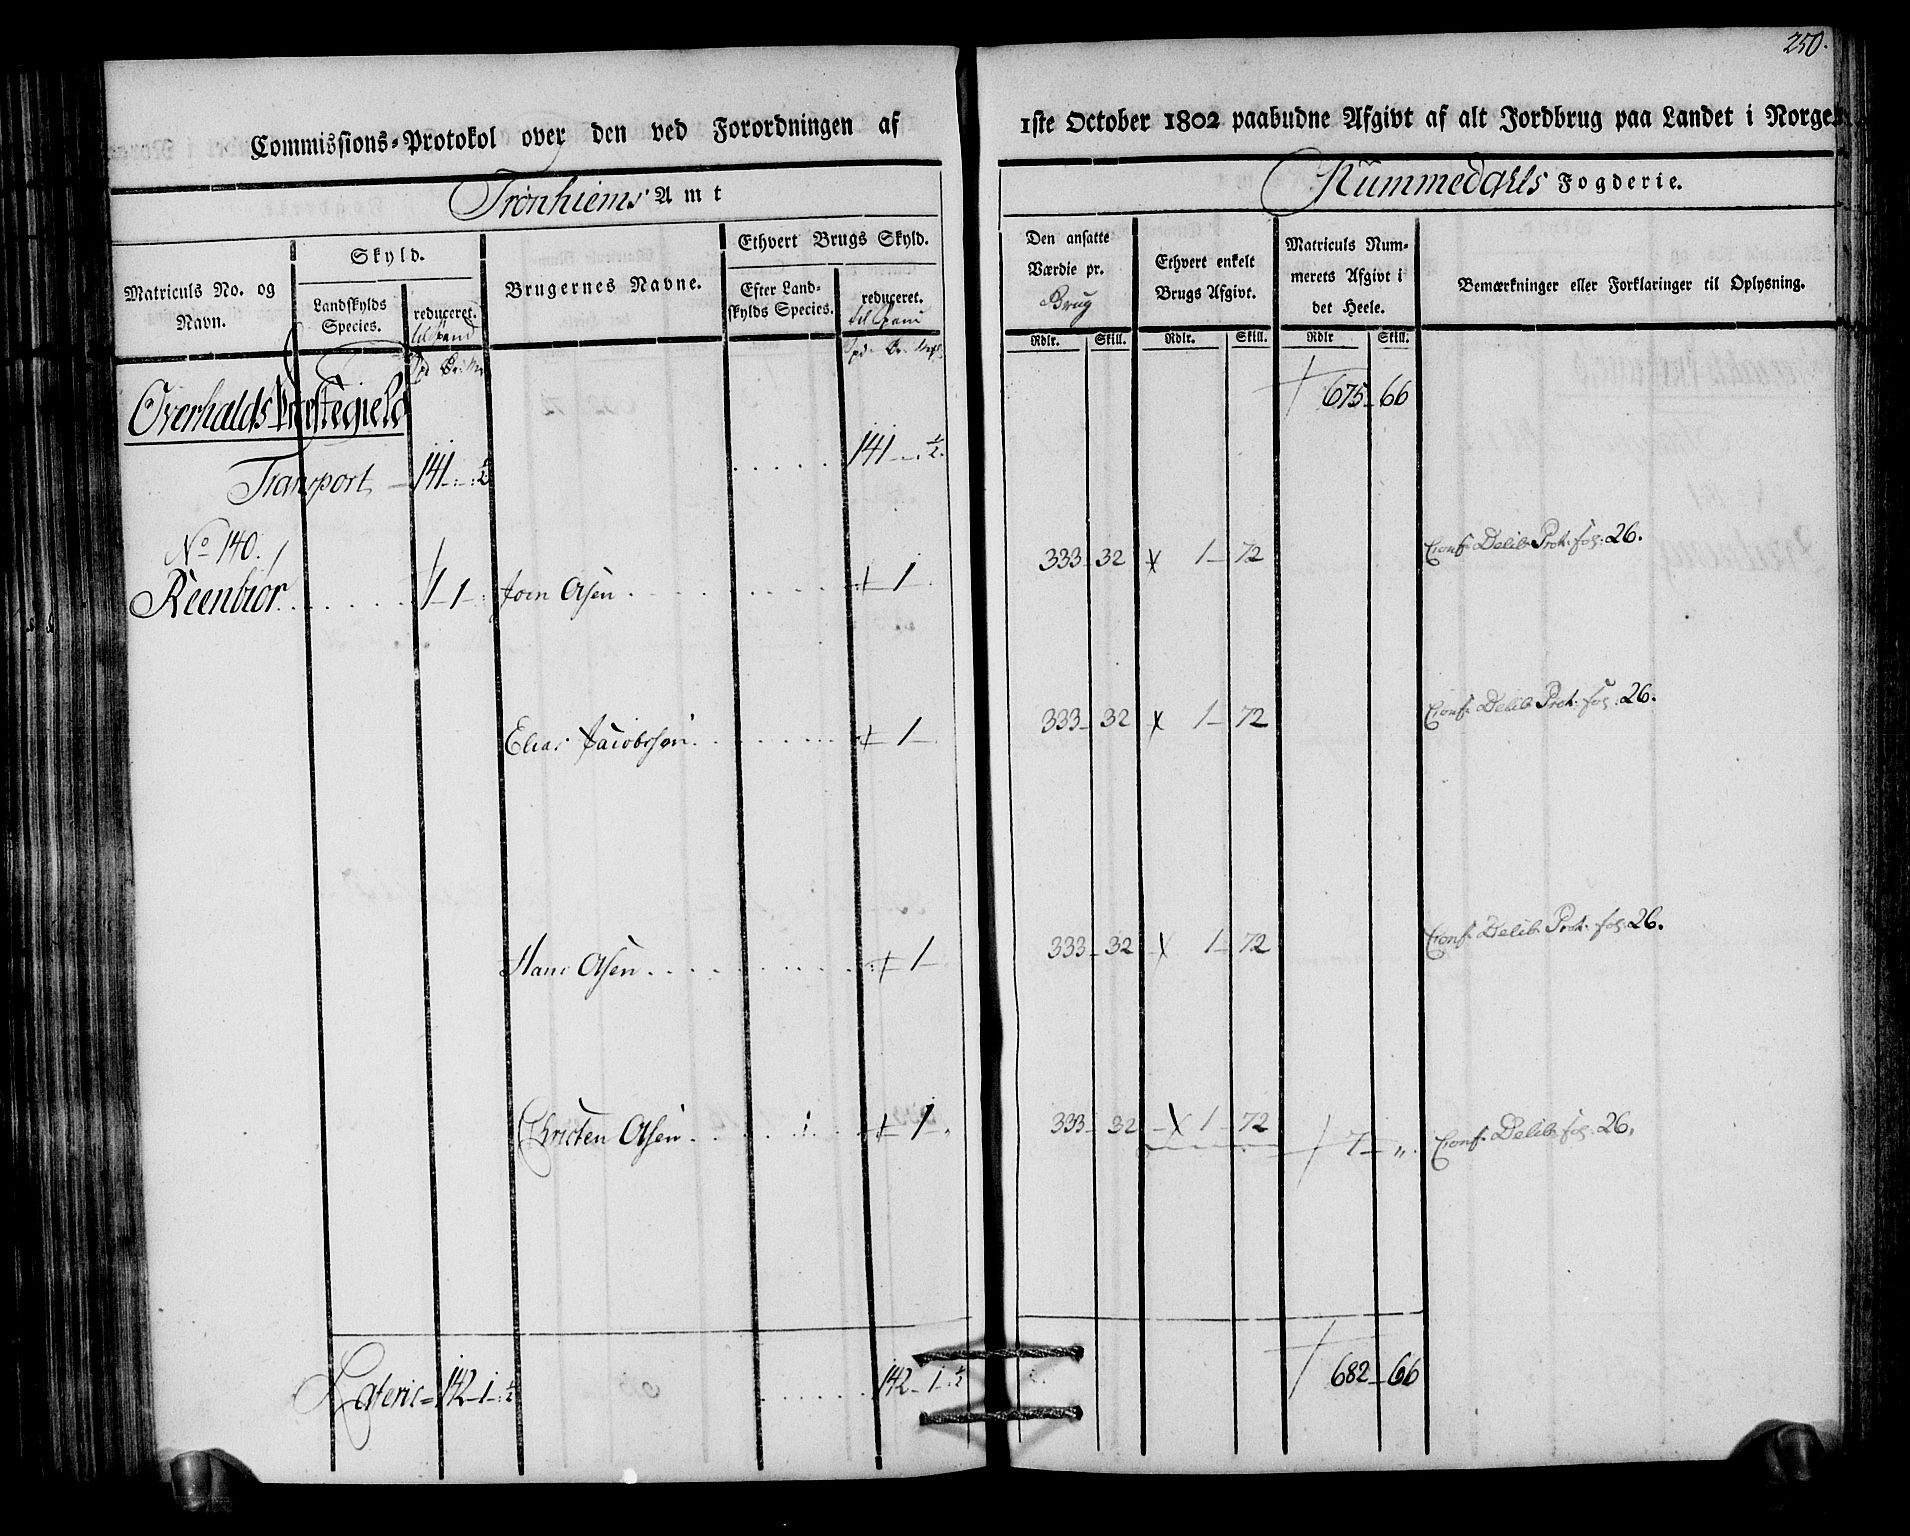 250.
Commissions-Protokol over den ved Forordningen af 1ste October 1802 paabudne Afgivt af alt Jordbrug paa Landet i Norge.
Trønhiems Amt
Nummedahls Fogderie.
Matriculs No. og Navn.
Skyld.
Landskylds Species.
reduceret. til Spand
Brugernes Navne.
Ethvert Brugs Skyld.
Efter Landskylds Species.
reduceret. til Spand
Den ansatte Værdie pr. Brug
Ethvert enkelt Brugs Afgivt.
Matriculs Nummerets Afgivt i det Heele.
Bemærkninger eller Forklaringer til Oplysning.
Rdlr. Skill. Rdlr. Skill. Rdlr Skill.
Overhalds Præstegield
675 - 66
Transport - 141 - : - 1/2 . . . . . 141 - . - 1/2.
No 140.
Reenbiør . . . . . . 1 - 1 - : Joen Olsen . . . . . . . . . 1 - 333 - 32 x 1 - 72 Conf. Delib. Prot. fol: 26.
Elias Jacobsen . . . . . . . . 1 - 333 - 32 x 1 - 72 Conf. Delib. Prot. fol: 26.
Hans Olsen . . . . . . . . . 1 - 333 - 32 x 1 - 72 Conf. Delib. Prot. fol: 26.
Christen Olsen . . . . . . . 1 - 333 - 32 x 1 - 72 7 - ". Conf. Delib. fol: 26.
Lateris = 142 - 1 - 1/2 . . . . . . 142 - 1 - 1/2 682 - 66